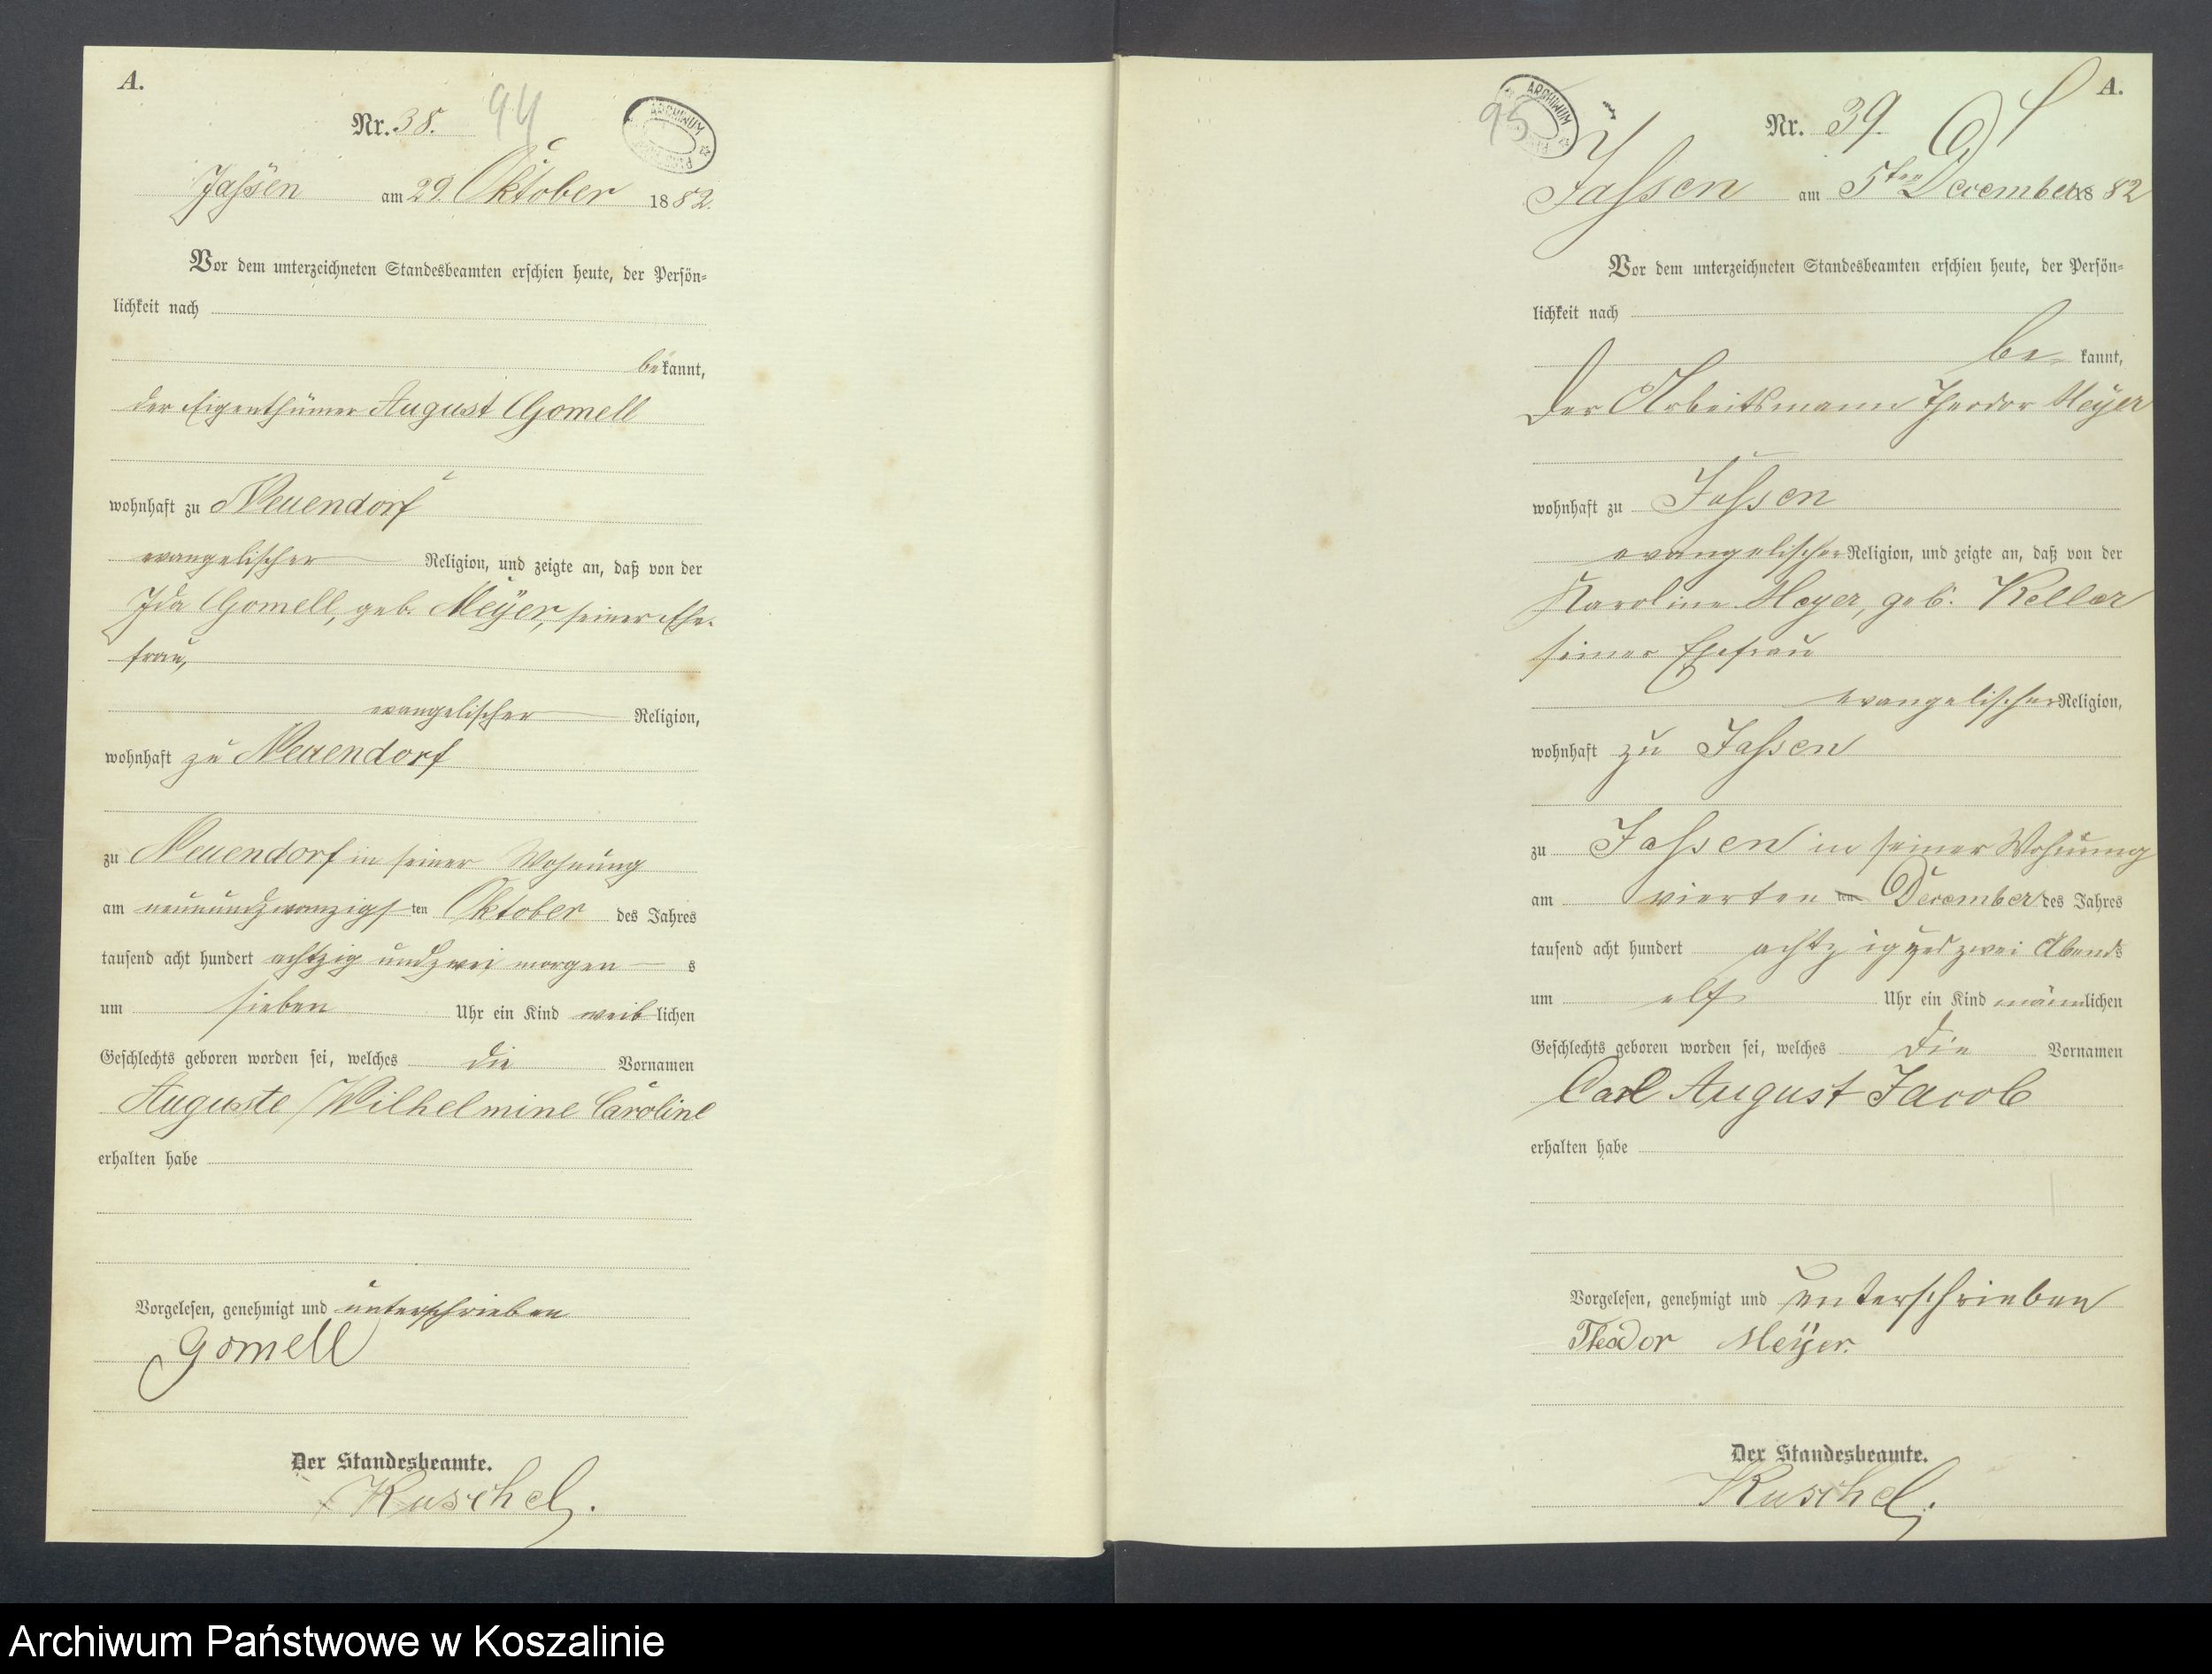 A.
Nr. 38. 94
ARCHIWUM
Jassen am 29. Oktober 1882.
Vor dem unterzeichneten Standesbeamten erschien heute, der Persön-
lichkeit nach
bekannt,
der Eigenthümer August Gomell
wohnhaft zu Neuendorf
evangelischer Religion, und zeigte an, daß von der
Ida Gomell, geb. Meÿer, seiner Ehe-
frau,
evangelischer Religion,
wohnhaft zu Neuendorf
zu Neuendorf in seiner Wohnung
am neunundzwanzigsten Oktober des Jahres
tausend acht hundert achtzig und zwei morgens
um sieben Uhr ein Kind weiblichen
Geschlechts geboren worden sei, welches die Vornamen
Auguste Wilhelmine Caroline
erhalten habe
Vorgelesen, genehmigt und unterschrieben
Gomell
Der Standesbeamte.
Kuschel.
A.
95 Nr. 39.
ARCHIWUM
Jassen am 5ten December 1882
Vor dem unterzeichneten Standesbeamten erschien heute, der Persön-
lichkeit nach
be- kannt,
der Arbeitsmann Theodor Meÿer
wohnhaft zu Jassen
evangelischer Religion, und zeigte an, daß von der
Karoline Meyer, geb. Keller
seiner Ehefrau
evangelischer Religion,
wohnhaft zu Jassen
zu Jassen in seiner Wohnung
am vierten ten December des Jahres
tausend acht hundert achtzig und zwei Abends
um elf Uhr ein Kind männlichen
Geschlechts geboren worden sei, welches die Vornamen
Carl August Jacob
erhalten habe
Vorgelesen, genehmigt und unterschrieben
Theodor Meÿer.
Der Standesbeamte.
Kuschel.
Archiwum Państwowe w Koszalinie